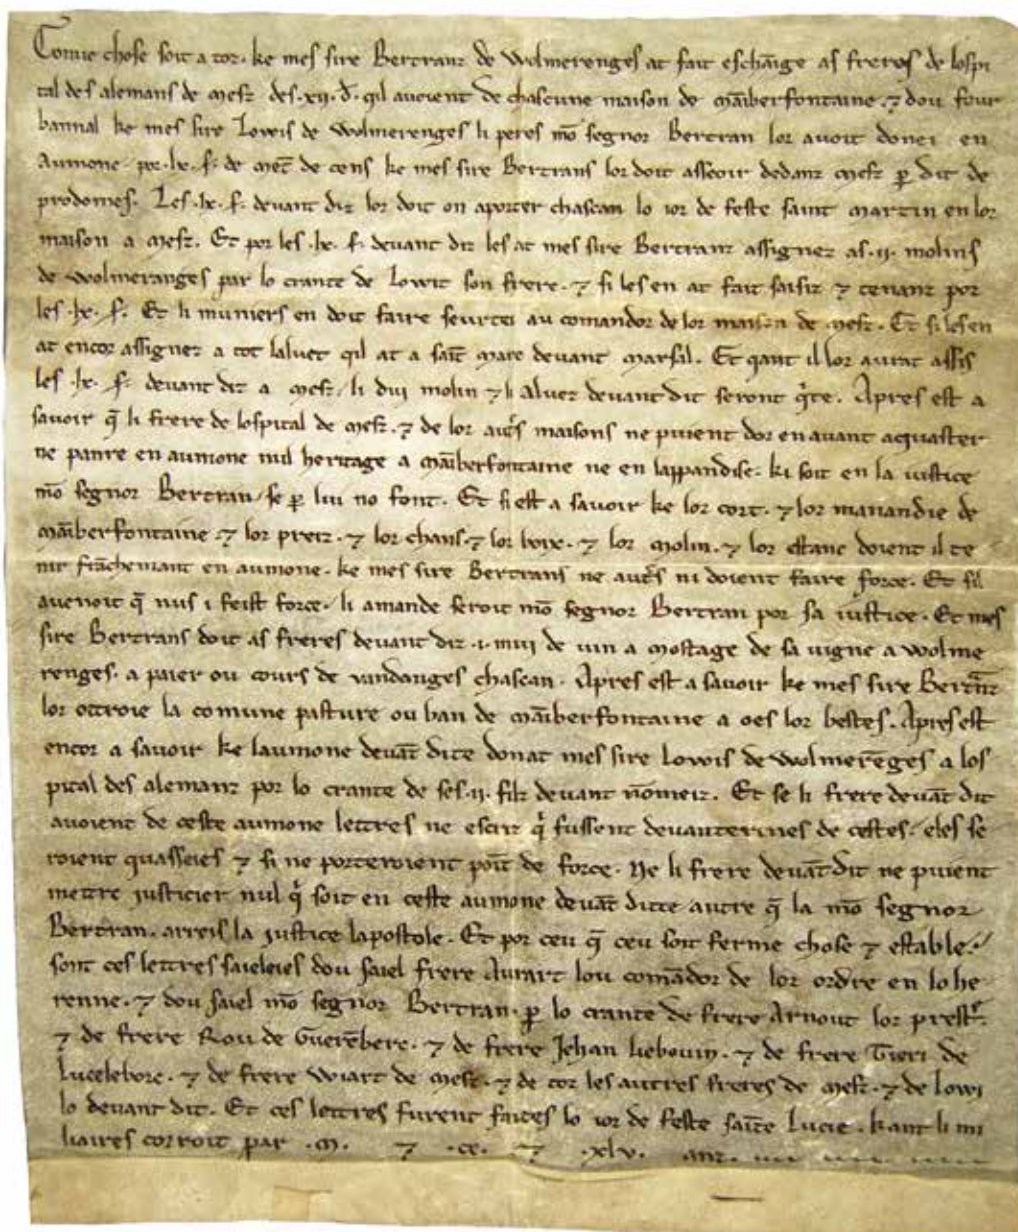 Conue chose soit a toz· ke mes sire Bertranz de Wolmerenges at fait eschāge as freres de lospi
tal des alemans de Mesz des·xii·d̄· qil auoient de chascune maison de Māiberfontaine· ⁊ dou four
bannal ke mes sire Lowis de Wolmerenges li peres mō segnor Bertran lor auoit donei en
Aumone· por·lx·ſ· de Met̄ de cens ke mes sire Bertrans lor doit asseoir dedanz Mesz p̱ dit de
prodomes· Les·lx·ſ· deuant diz lor doit on aporter chascan lo ior de feste saint Martin en lor
maison a Mesz. Et por les·lx·ſ· deuant diz les at mes sire Bertranz assignez as·ii· molins
de Wolmeranges par lo crante de Lowit son frere· ⁊ si les en at fait saisiz ⁊ tenanz por
les·lx·ſ· Et li muniers en doit faire seurtei au comandor de lor maison de Mesz· Et si les en
at encor assignez a tot laluet qil at a sāit Marc deuant Marsal. Et qant il lor aurat assis
les·lx·ſ· deuant diz a Mesz· li dui molin ⁊ li Aluez deuant dit seront q̇te. Apres est a
sauoir q̄ li frere de lospital de Mesz· ⁊ de lor aut̾s maisons ne puient dor en auant aquaster
ne panre en aumone nul heritage a Māiberfontaine ne en lappandise· ki soit en la iustice
mō segnor Bertran· se p̱ lui no font. Et si est a sauoir ke lor cort· ⁊ lor manandie de
Māiberfontaine· ⁊ lor preiz· ⁊ lor chans· ⁊ lor boix· ⁊ lor Molin· ⁊ lor estanc doient il te
nir frāchemant en aumone· ke mes sire Bertrans ne aut̾s ni doient faire force· Et sil
auenoit q̄ nus i feist force· li amande seroit mō segnor Bertran por sa iustice· Et mes
sire Bertrans doit as freres deuant diz·i· mui de uin a Mostage de sa uigne a Wolme
renges· a paier ou cours de vandanges chascan· Apres est a sauoir ke mes sire Bert̄nz
lor octroie la comune pasture ou ban de Māiberfontaine a oes lor bestes. Apres est
encor a sauoir ke laumone deuāt dite donat mes sire Lowis de Wolmerēges a los
pital des alemanz por lo crante de ses·ii· filz deuant nōmeiz. Et se li frere deuāt dit
auoient de ceste aumone lettres ne escriz q̇ fussent deuanterines de cestes· eles se
roient quasseies ⁊ si ne porteroient poīt de force· Ne li frere deuāt dit ne puient
mettre justicier nul q̇ soit en ceste aumone deuāt ditte autre q̄ la mō segnor
Bertran· arreis la justice lapostole· Et por ceu q̄ ceu soit ferme chose ⁊ estable·
sont ces lettres saieleies dou saiel frere Aurart lou comādor de lor ordre en lohe
renne· ⁊ dou saiel mō segnor Bertran· p̱ lo crante de frere Arnout lor prest̾·
⁊ de frere Rou de Guerēberc· ⁊ de frere Jehan liebouin· ⁊ de frere Tieri de
Luceleborc· ⁊ de frere Wiart de Mesz· ⁊ de toz les autres freres de Mesz· ⁊ de Lowi
lo deuant dit. Et ces lettres furent faites lo ior de feste sāite Lucie· kant li mi
liaires corroit par ·M· ⁊ ·cc· ⁊ ·xlv· anz·